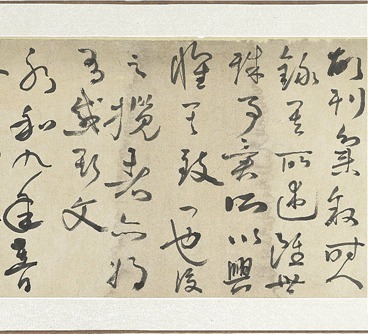 故列叙時人
錄其所述雖世
殊事異所以興
懷其致一也後
之攬者亦將
有感斯文
永和九年暮